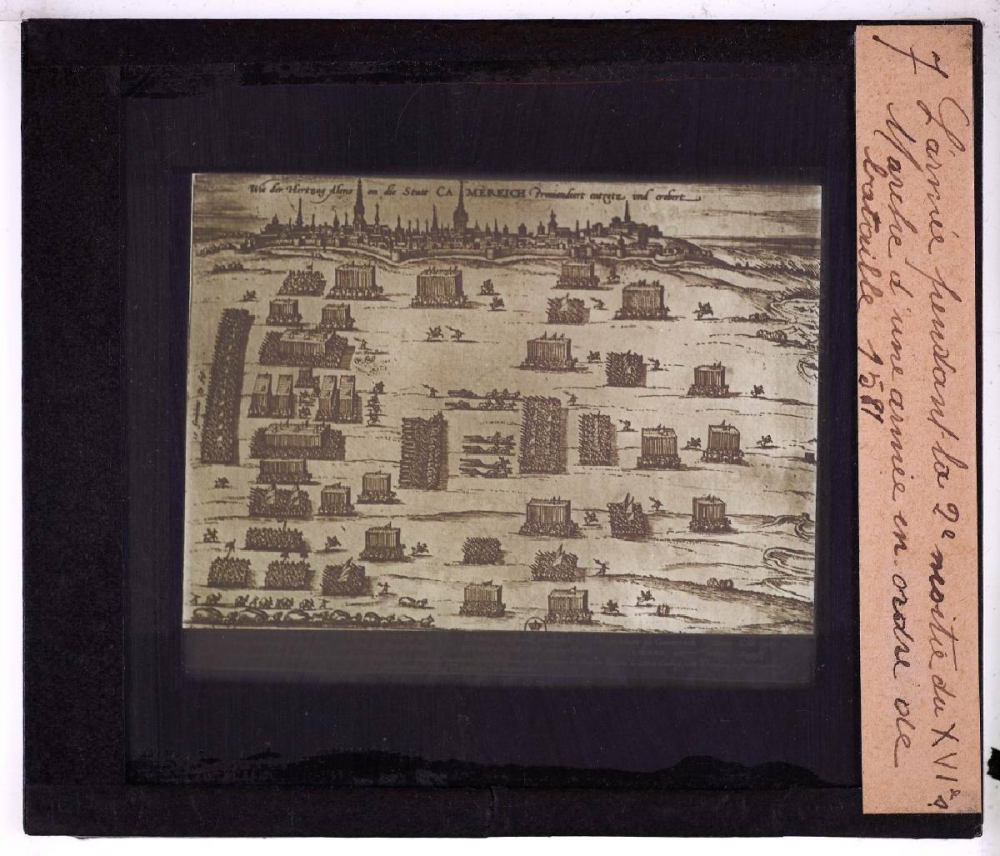 7
L'armée pendant la 2e moitié du XVIe s.
Marche d'une armée en ordre de
bataille 1581
Wie der Hertzog Alens on die Statt CAMEREICH Proviandiert entsetz und erobert